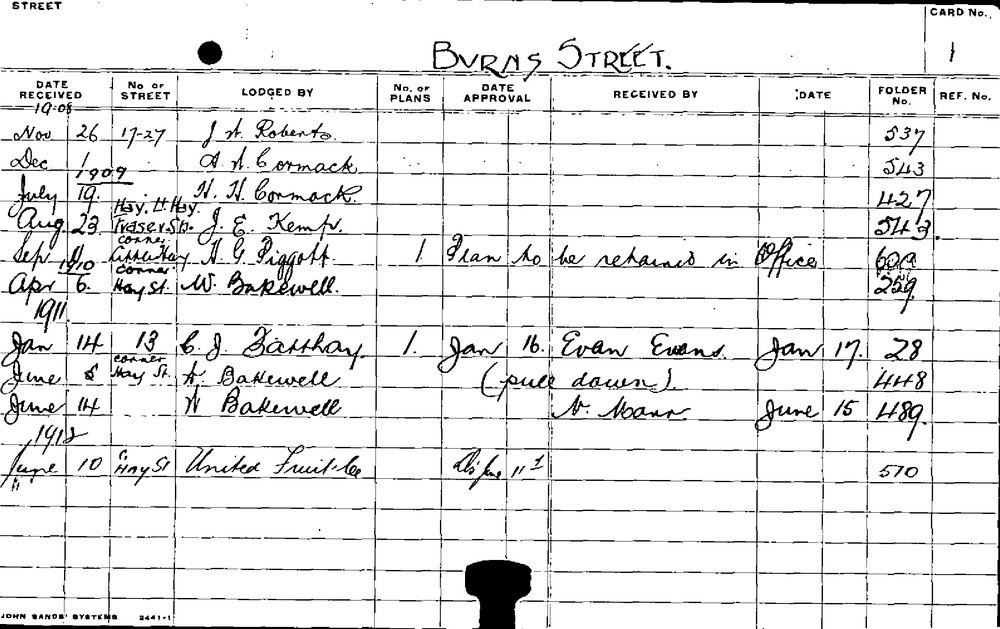 STREET
CARD No.
1
BURNS STREET.
DATE RECEIVED No OF STREET LODGED BY No. OF PLANS DATE APPROVAL RECEIVED BY DATE FOLDER No. REF. No.
1908
Nov 26 17-27 J W. Roberts. 537
Dec 1 Cormack 543
1909
July 19. H. H. Cormack. 427
Hay, Lt Hay.
Aug 23 Fraser Sts. J. E. Kemp. 543.
corner
Sep Little Hay H. G. Piggott. 1 Plan to be retained in Office
1910
corner
Apr 6. Hay St. W. Bakewell. 259.
1911.
Jan 14 13 C. J. 1. Jan 16. Evan Evans. Jan 17. 28
corner
June Hay St. Bakewell (pull down). 448
June 14 Bakewell N. Mann June 15 489.
1912
June 10 Hay St United Fruit Co June 11 570
"
JOHN SANDS' SYSTEMS 2441-1